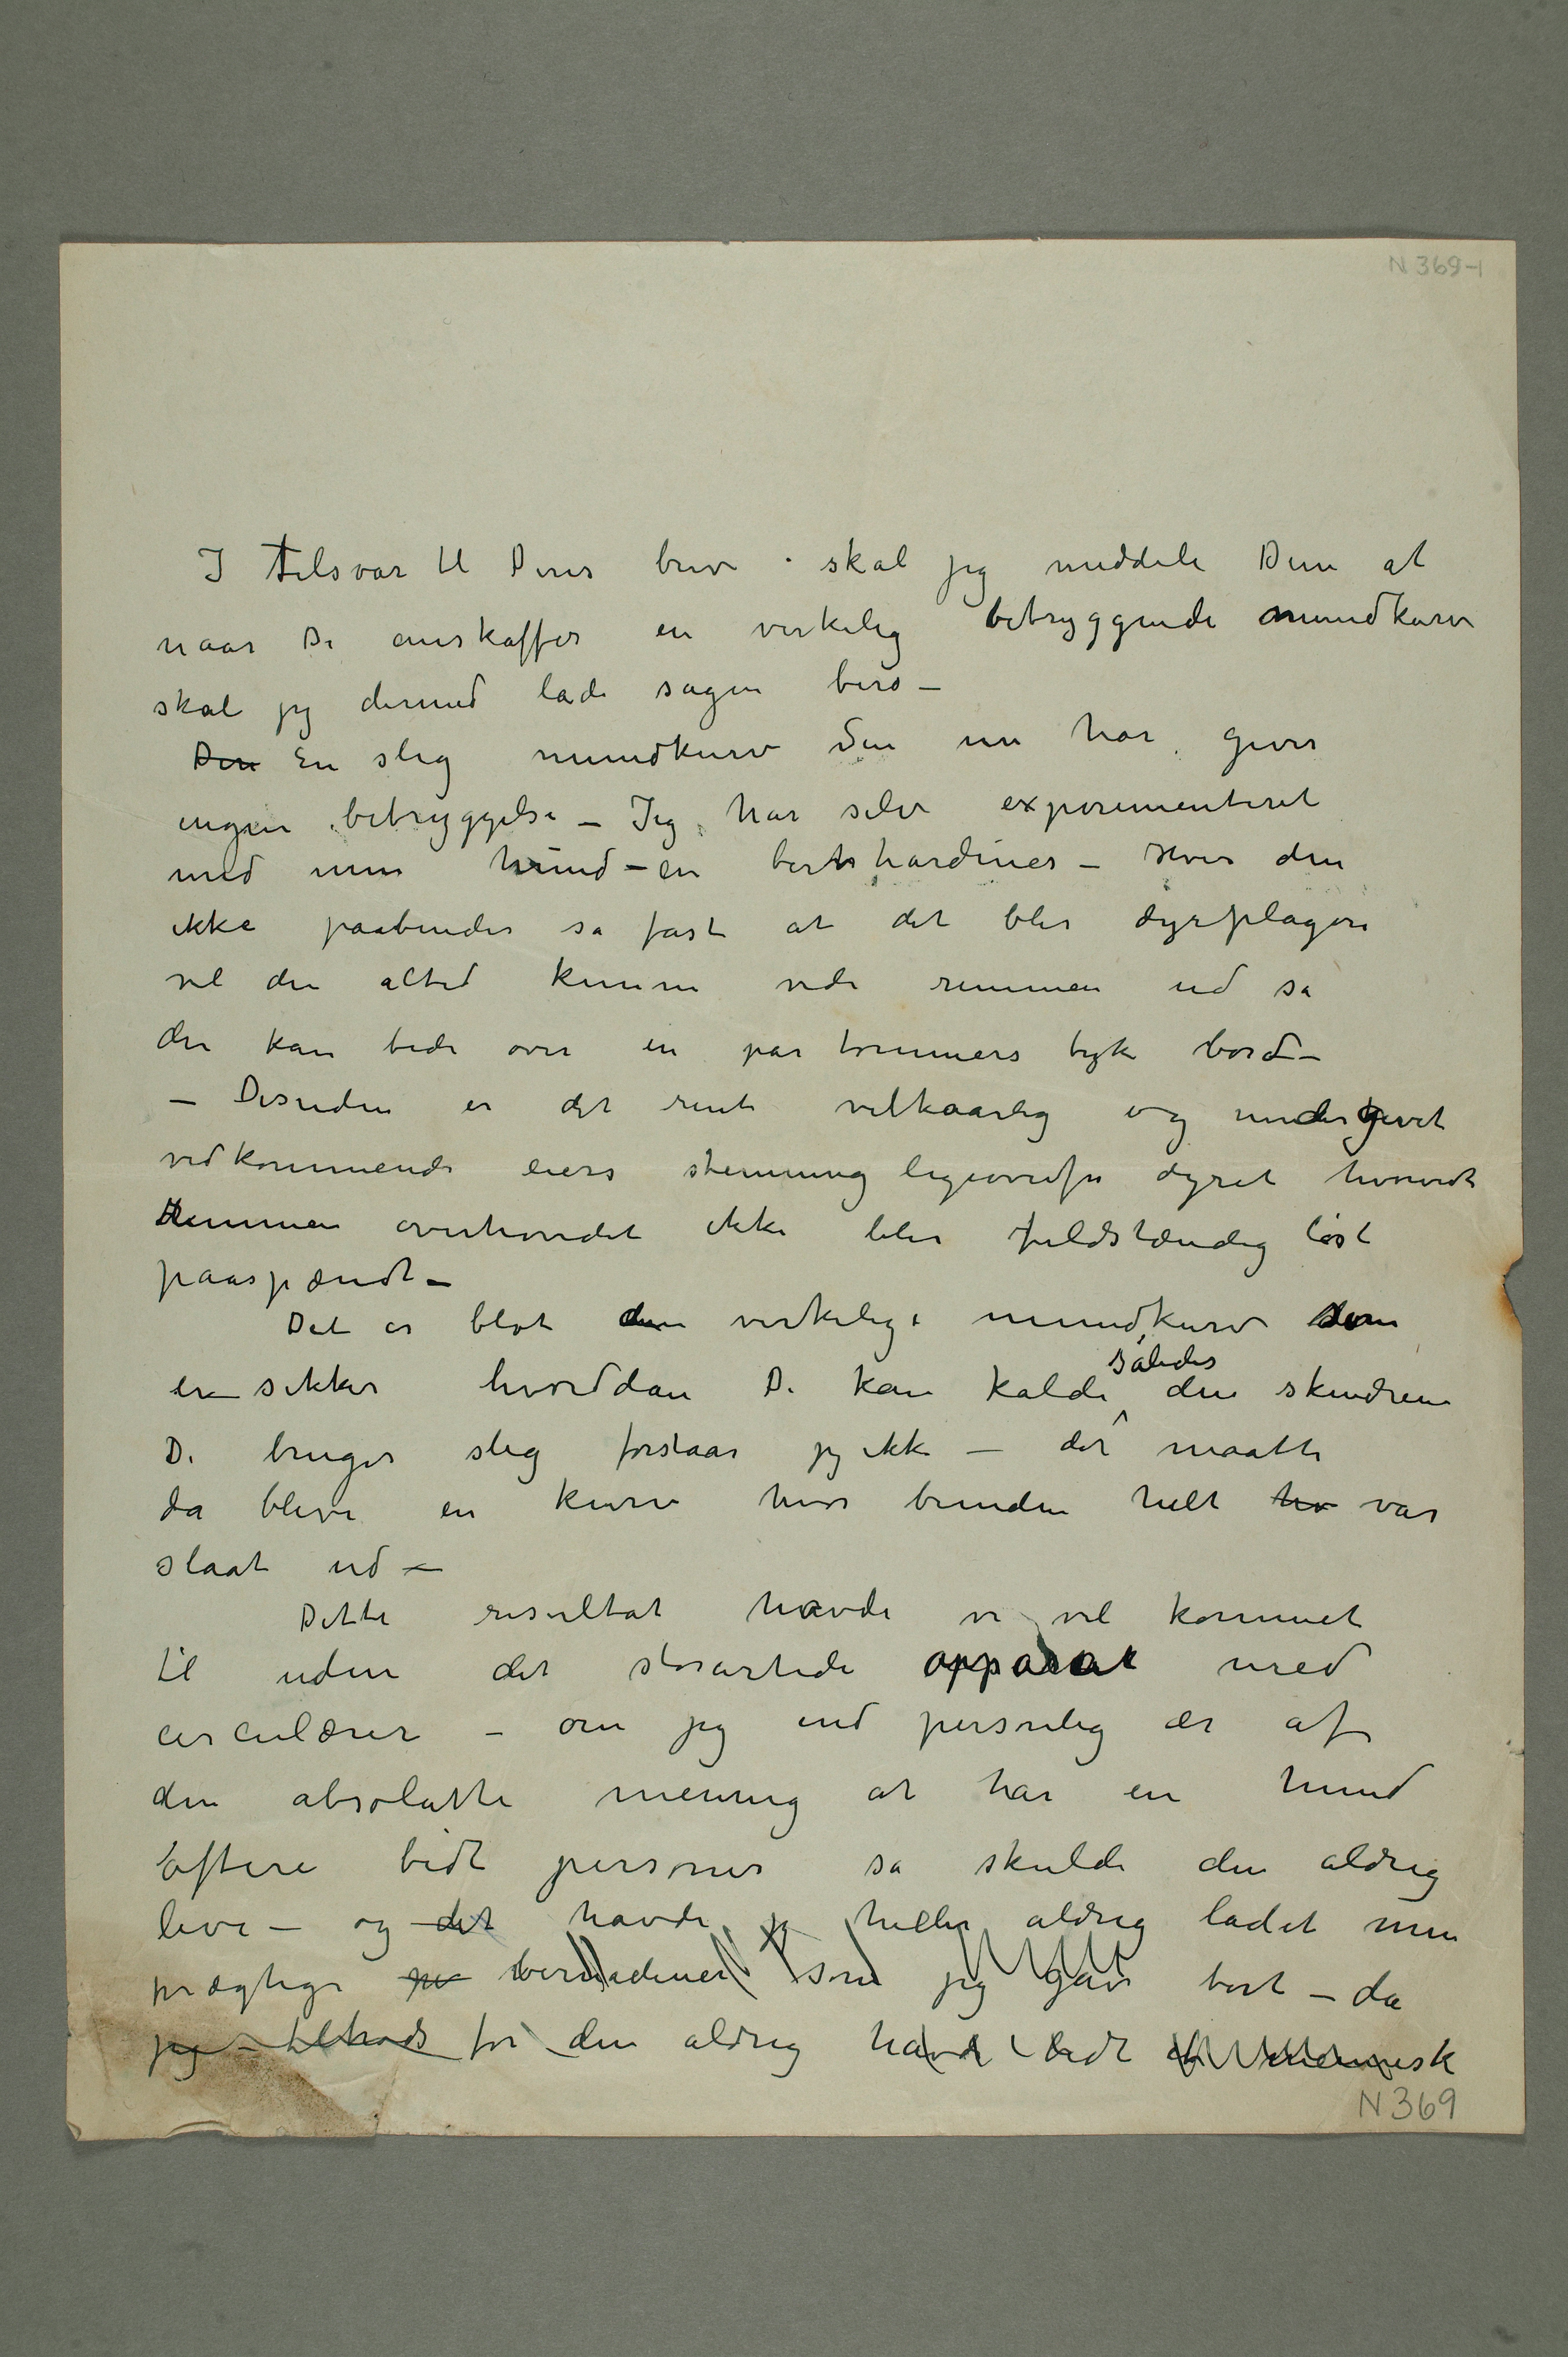 N 369-1
I Tilsvar til Deres brev skal jeg meddele Dem at
naar De anskaffer en virkelig betryggende mundkurv
skal jeg dermed lade sagen bero –
Den En slig mundkurv Den nu har giver
ingen betryggelse – Jeg har selv experimenteret
med min hund – en bernhardiner – Hvis den
ikke paabindes så fast at det blir dyrplageri
vil den altid kunne vide remmen ud så
den kan bide over en par tommers tyk bord –
– Desuden er det rent vilkaarlig og undergivet
vedkommende eiers stemning ligeoverfor dyret hvorvidt
Remmen overhovedet ikke blir fuldstændig løst
paaspændt –
Det er blot den virkelige mundkurv som
er sikker hvorddan De kan kalde således den skindrem
De bruger slig forstaar jeg ikke – det maatte
da blive en kurv hvor bunden helt hv var
slaat ud –
Dette resultat havde vi vel kommet
til uden det storartede apparat med
circulærer – om jeg end personlig er af
den absolutte mening at har en hund
oftere bidt personer så skulde den aldrig
leve – og det havde jeg heller aldrig ladet min
prægtige bernadiner som jeg gav bort – da
jeg tiltrods for den aldrig havde bidt et mennesk
N 369